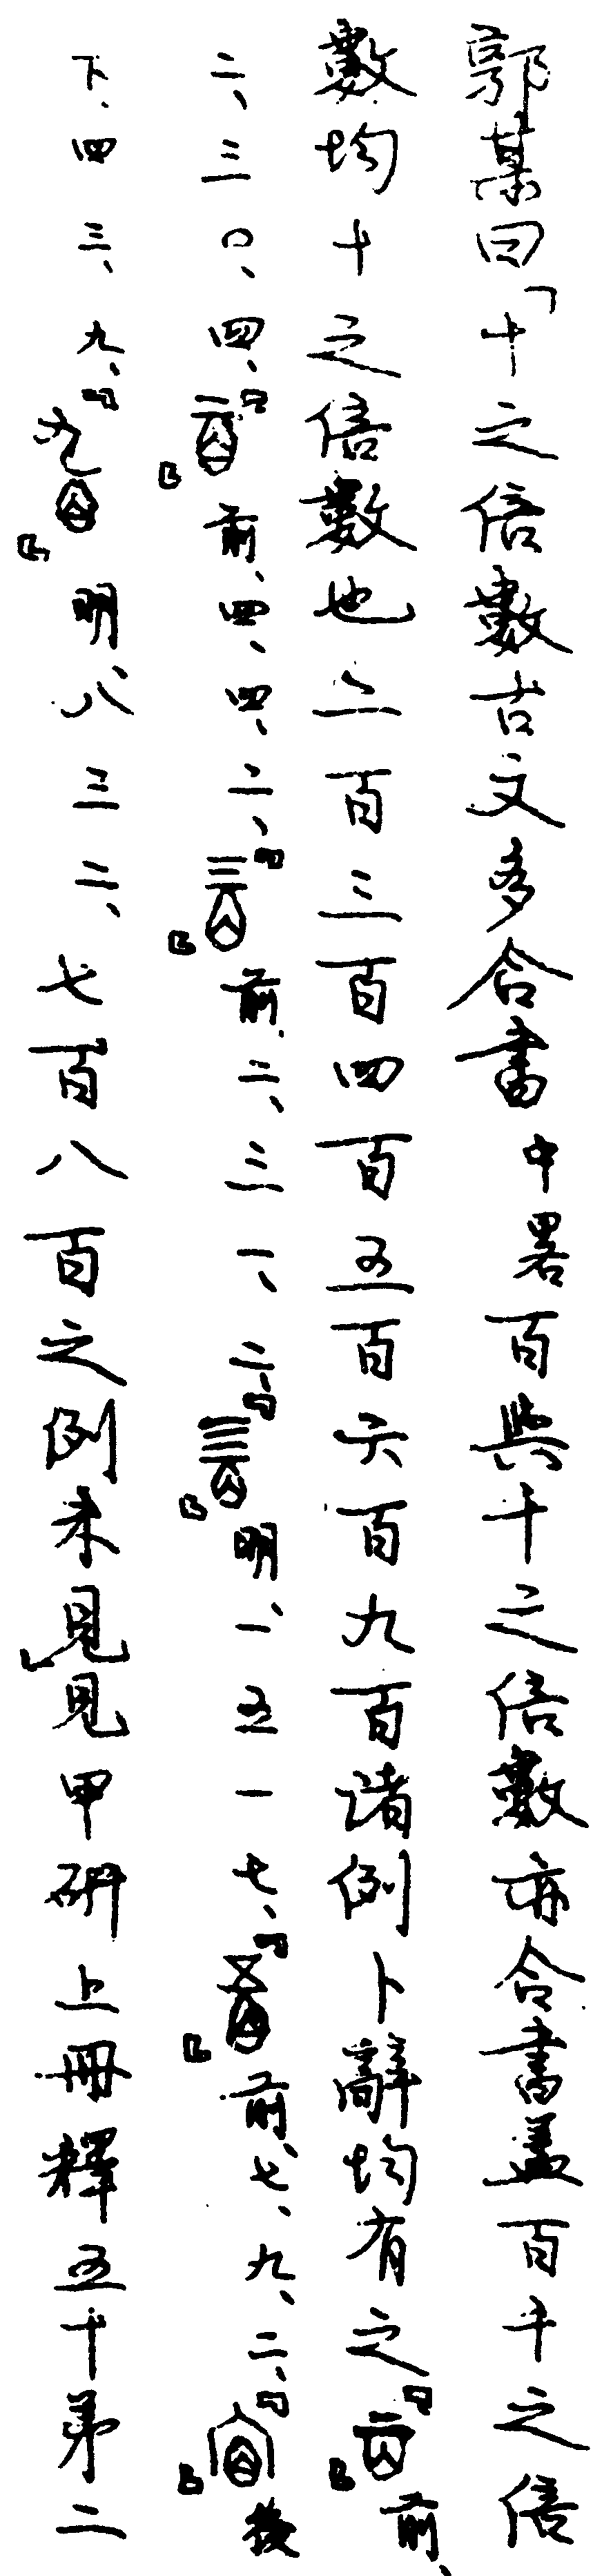 郭某曰「十之倍數古文多合書中畧百與千之倍數亦合書蓋百千之倍
數均十之倍數也二百三百四百五百六百九百諸例卜辭均有之『』前、
二、三〇、四、『』前、四、四、二、『』前、二、三一、二、『』明、一、五一七、『』前、七、九、二、『』後
下、四三、九、『』明八、三二、七百八百之例未見」見甲研上冊釋五十第二